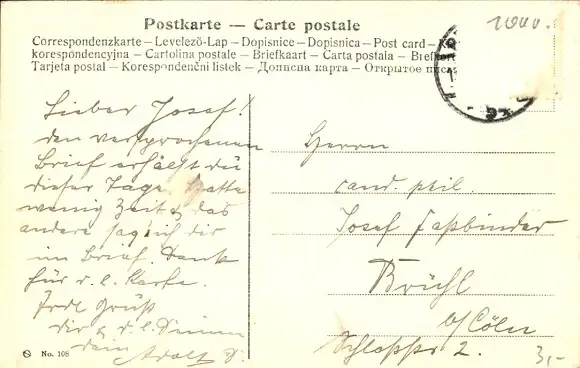 Postkarte — Carte postale
Correspondenzkarte – Levelező-Lap – Dopisnice – Dopisnica – Post card –
korespondencyjna – Cartolina postale – Briefkaart – Carta postala – Brefkort
Tarjeta postal – Korespondenční lístek – Дописна карта – Открытое
Lieber Josef!
den versprochenen
Brief erhältst du
dieser Tage. Hatte
wenig Zeit & das
andere sag ich dir
im Brief. Dank
für d. l. Karte.
Gruß
dir & d. l. Deinen
dein Adolf D.
Herrn
cand. phil.
Josef Faßbinder
Brühl
b/Cöln
2.
No. 108
3,-